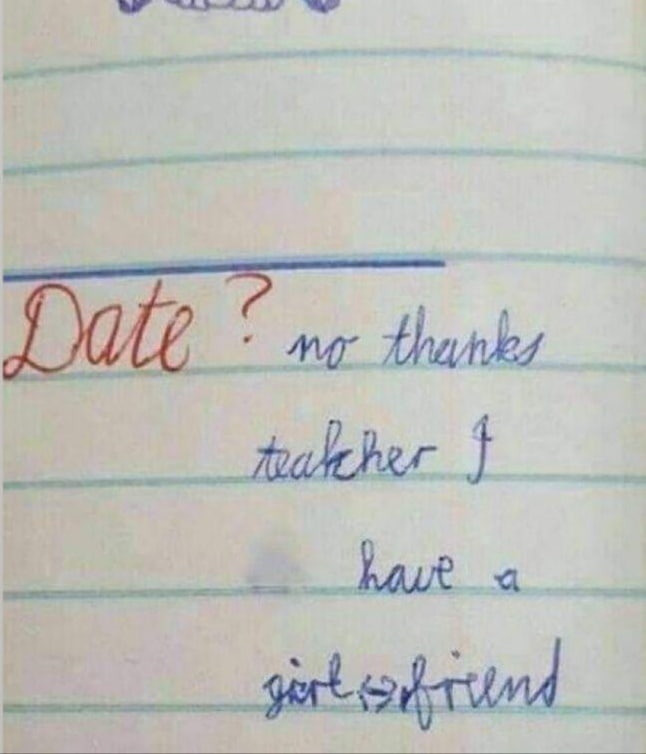 Date? no thanks
teakher I
have a
girl friend